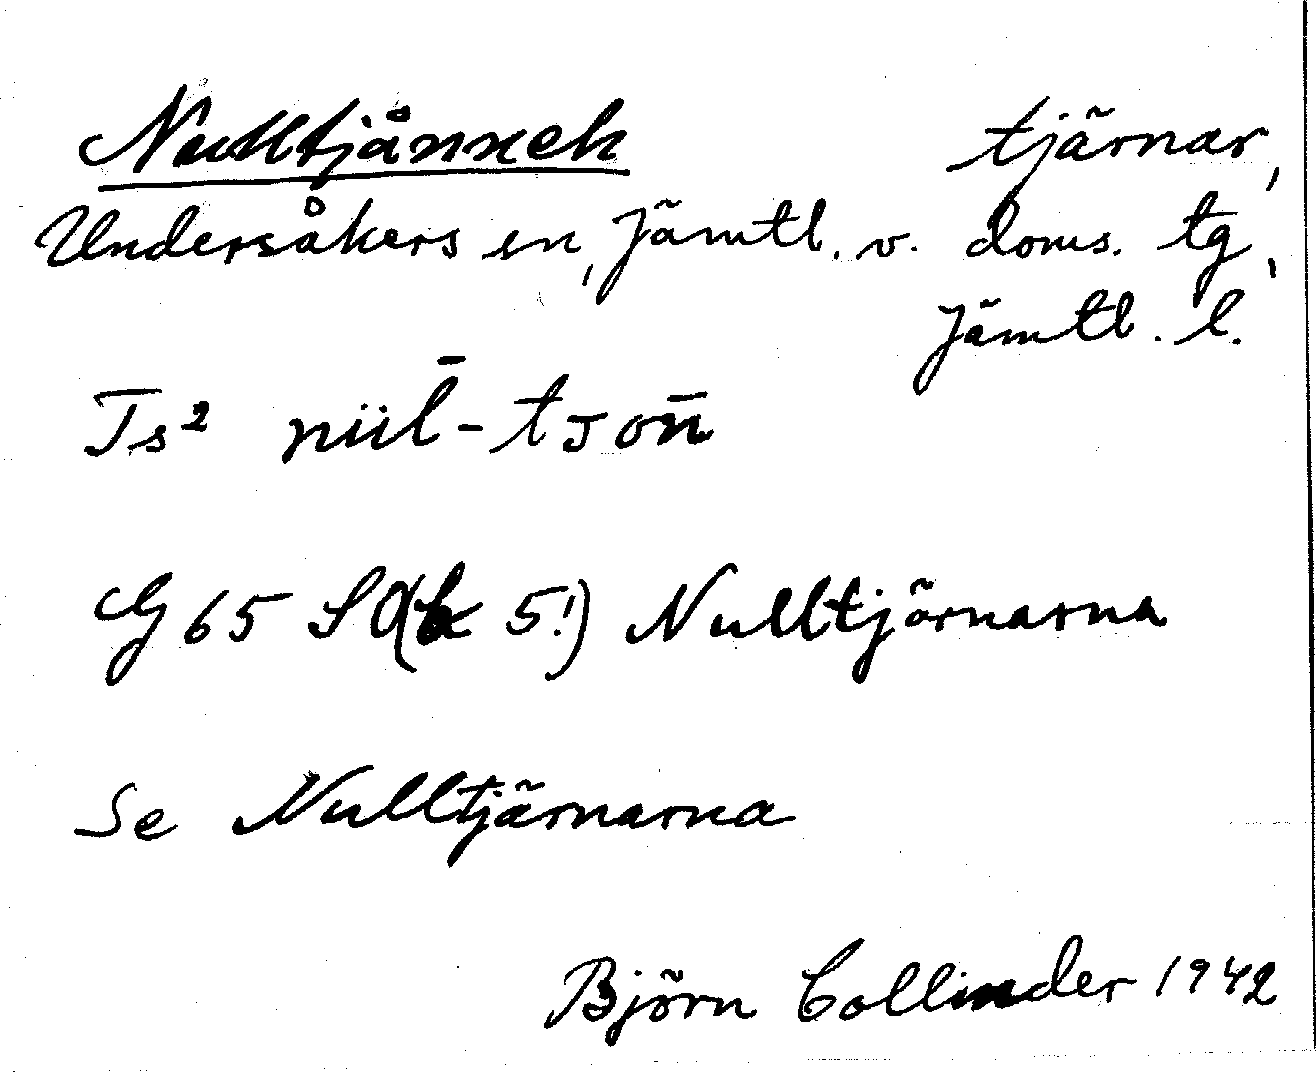 Nulltjånneh tjärnar,
Undersåkers sn, Jämtl. v. doms. tg,
Jämtl. l.
Ts² nül̄-tjon̄
G 65 SO (bl 5!) Nulltjörnarna
Se Nulltjärnarna
Björn Collinder 1942